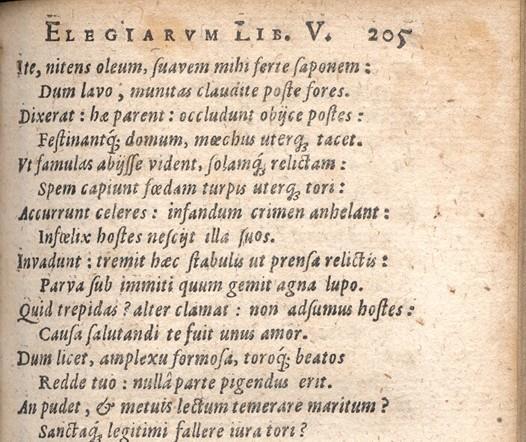 ELEGIARVM LIB. V. 205
Ite, nitens oleum, ſuavem mihi ferte ſaponem :
Dum lavo , munitas claudite poſte fores.
Dixerat : hæ parent : occludunt obijce poſtes :
Feſtinantq́; domum, mœchus uterq́; tacet.
Vt famulas abijſſe vident, ſolamq́; relictam :
Spem capiunt fœdam turpis uterq́; tori :
Accurrunt celeres : infandum crimen anhelant :
Infœlix hoſtes neſcijt illa ſuos.
Invadunt : tremit hæc ſtabulis ut prenſa relictis :
Parva ſub immiti quum gemit agna lupo.
Quid trepidas ? alter clamat : non adſumus hoſtes :
Cauſa ſalutandi te fuit unus amor.
Dum licet, amplexu formoſa, toroq́; beatos
Redde tuo : nullâ parte pigendus erit.
An pudet , & metuis lectum temerare maritum ?
Sanctaq́; legitimi fallere iura tori ?